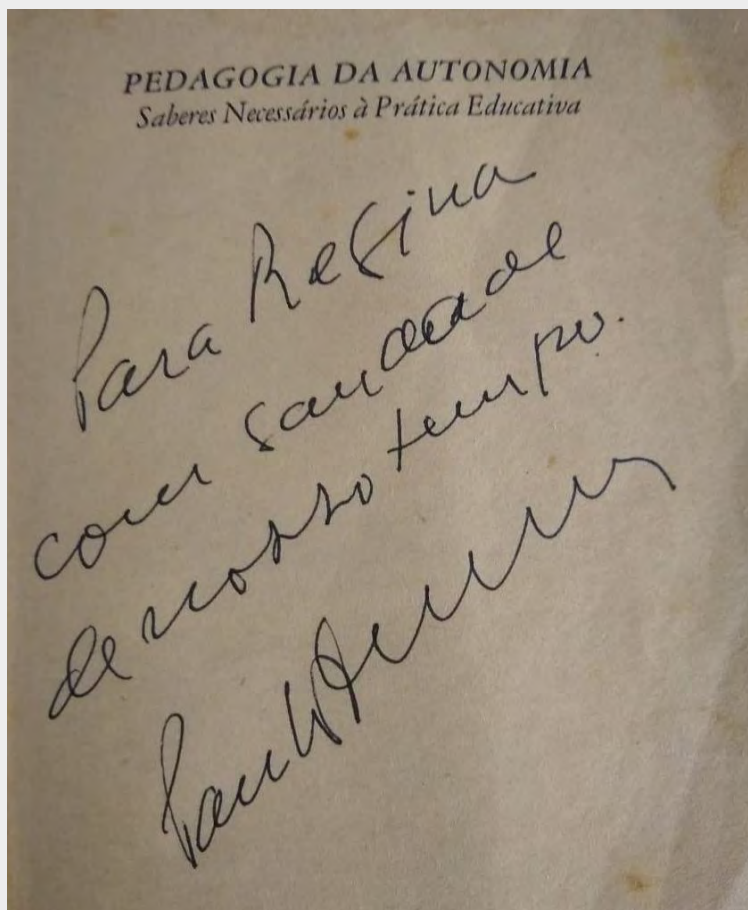 PEDAGOGIA DA AUTONOMIA
Saberes Necessários à Prática Educativa
Para Regina
com saudade
de nosso tempo.
Paulo